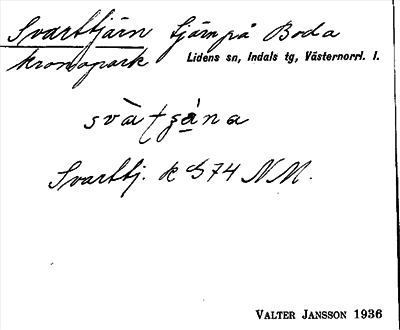 Svarttjärn tjärn på Boda
kronopark Lidens sn, Indals tg, Västernorrl. l.
svàtʃæ̀na
Svarttj. k 74 NM.
VALTER JANSSON 1936